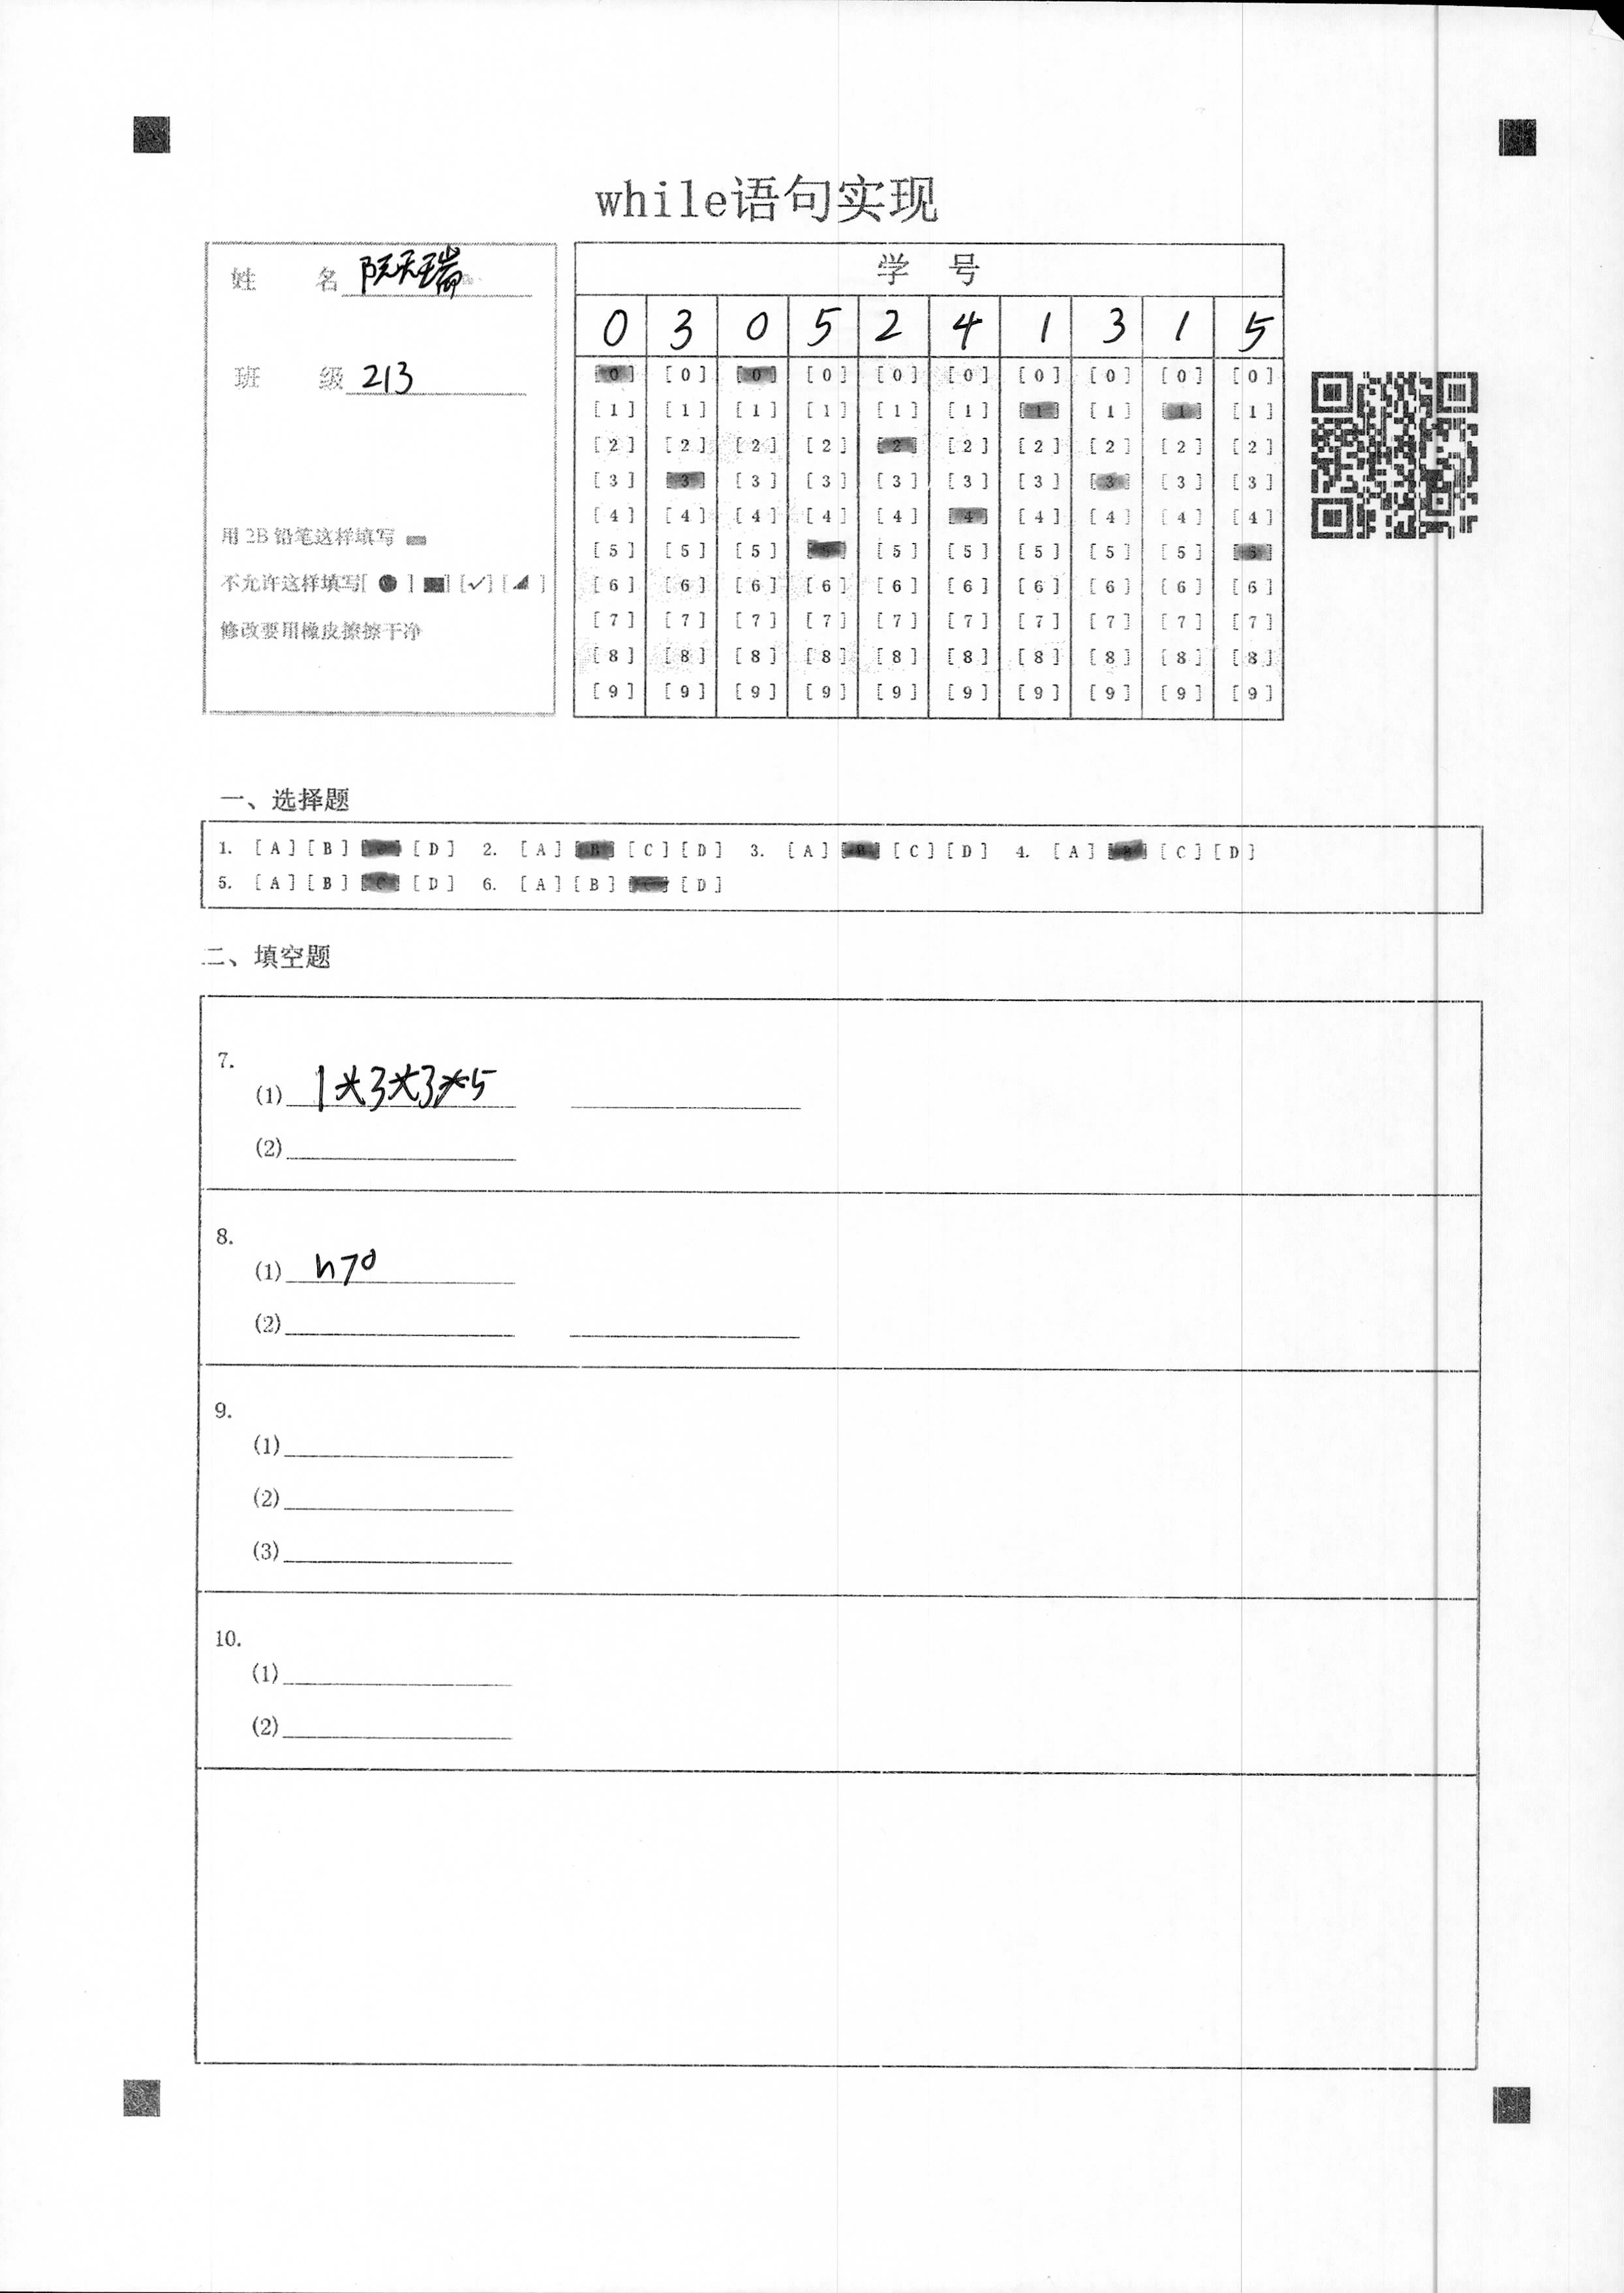 while语句实现
姓 名 阮天瑞
班 级 213
用 2B 铅笔这样填写
不允许这样填写[ ● ] [■] [✓] [ ]
修改要用橡皮擦擦干净
学 号
0 3 0 5 2 4 1 3 1 5
[0] [0] [0] [0] [0] [0] [0] [0] [0] [0]
[1] [1] [1] [1] [1] [1] [1] [1] [1] [1]
[2] [2] [2] [2] [2] [2] [2] [2] [2] [2]
[3] [3] [3] [3] [3] [3] [3] [3] [3] [3]
[4] [4] [4] [4] [4] [4] [4] [4] [4] [4]
[5] [5] [5] [5] [5] [5] [5] [5] [5] [5]
[6] [6] [6] [6] [6] [6] [6] [6] [6] [6]
[7] [7] [7] [7] [7] [7] [7] [7] [7] [7]
[8] [8] [8] [8] [8] [8] [8] [8] [8] [8]
[9] [9] [9] [9] [9] [9] [9] [9] [9] [9]
一、选择题
1. [A] [B] [C] [D] 2. [A] [B] [C] [D] 3. [A] [B] [C] [D] 4. [A] [B] [C] [D]
5. [A] [B] [C] [D] 6. [A] [B] [C] [D]
二、填空题
7.
(1) 1*3*3*5
(2)
8.
(1) n>0
(2)
9.
(1)
(2)
(3)
10.
(1)
(2)